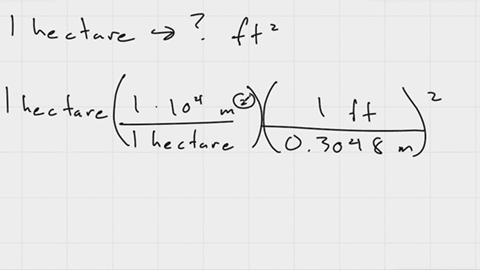 1 hectare → ? ft²
1 hectare (1 · 10⁴ m² / 1 hectare) (1 ft / 0.3048 m)²